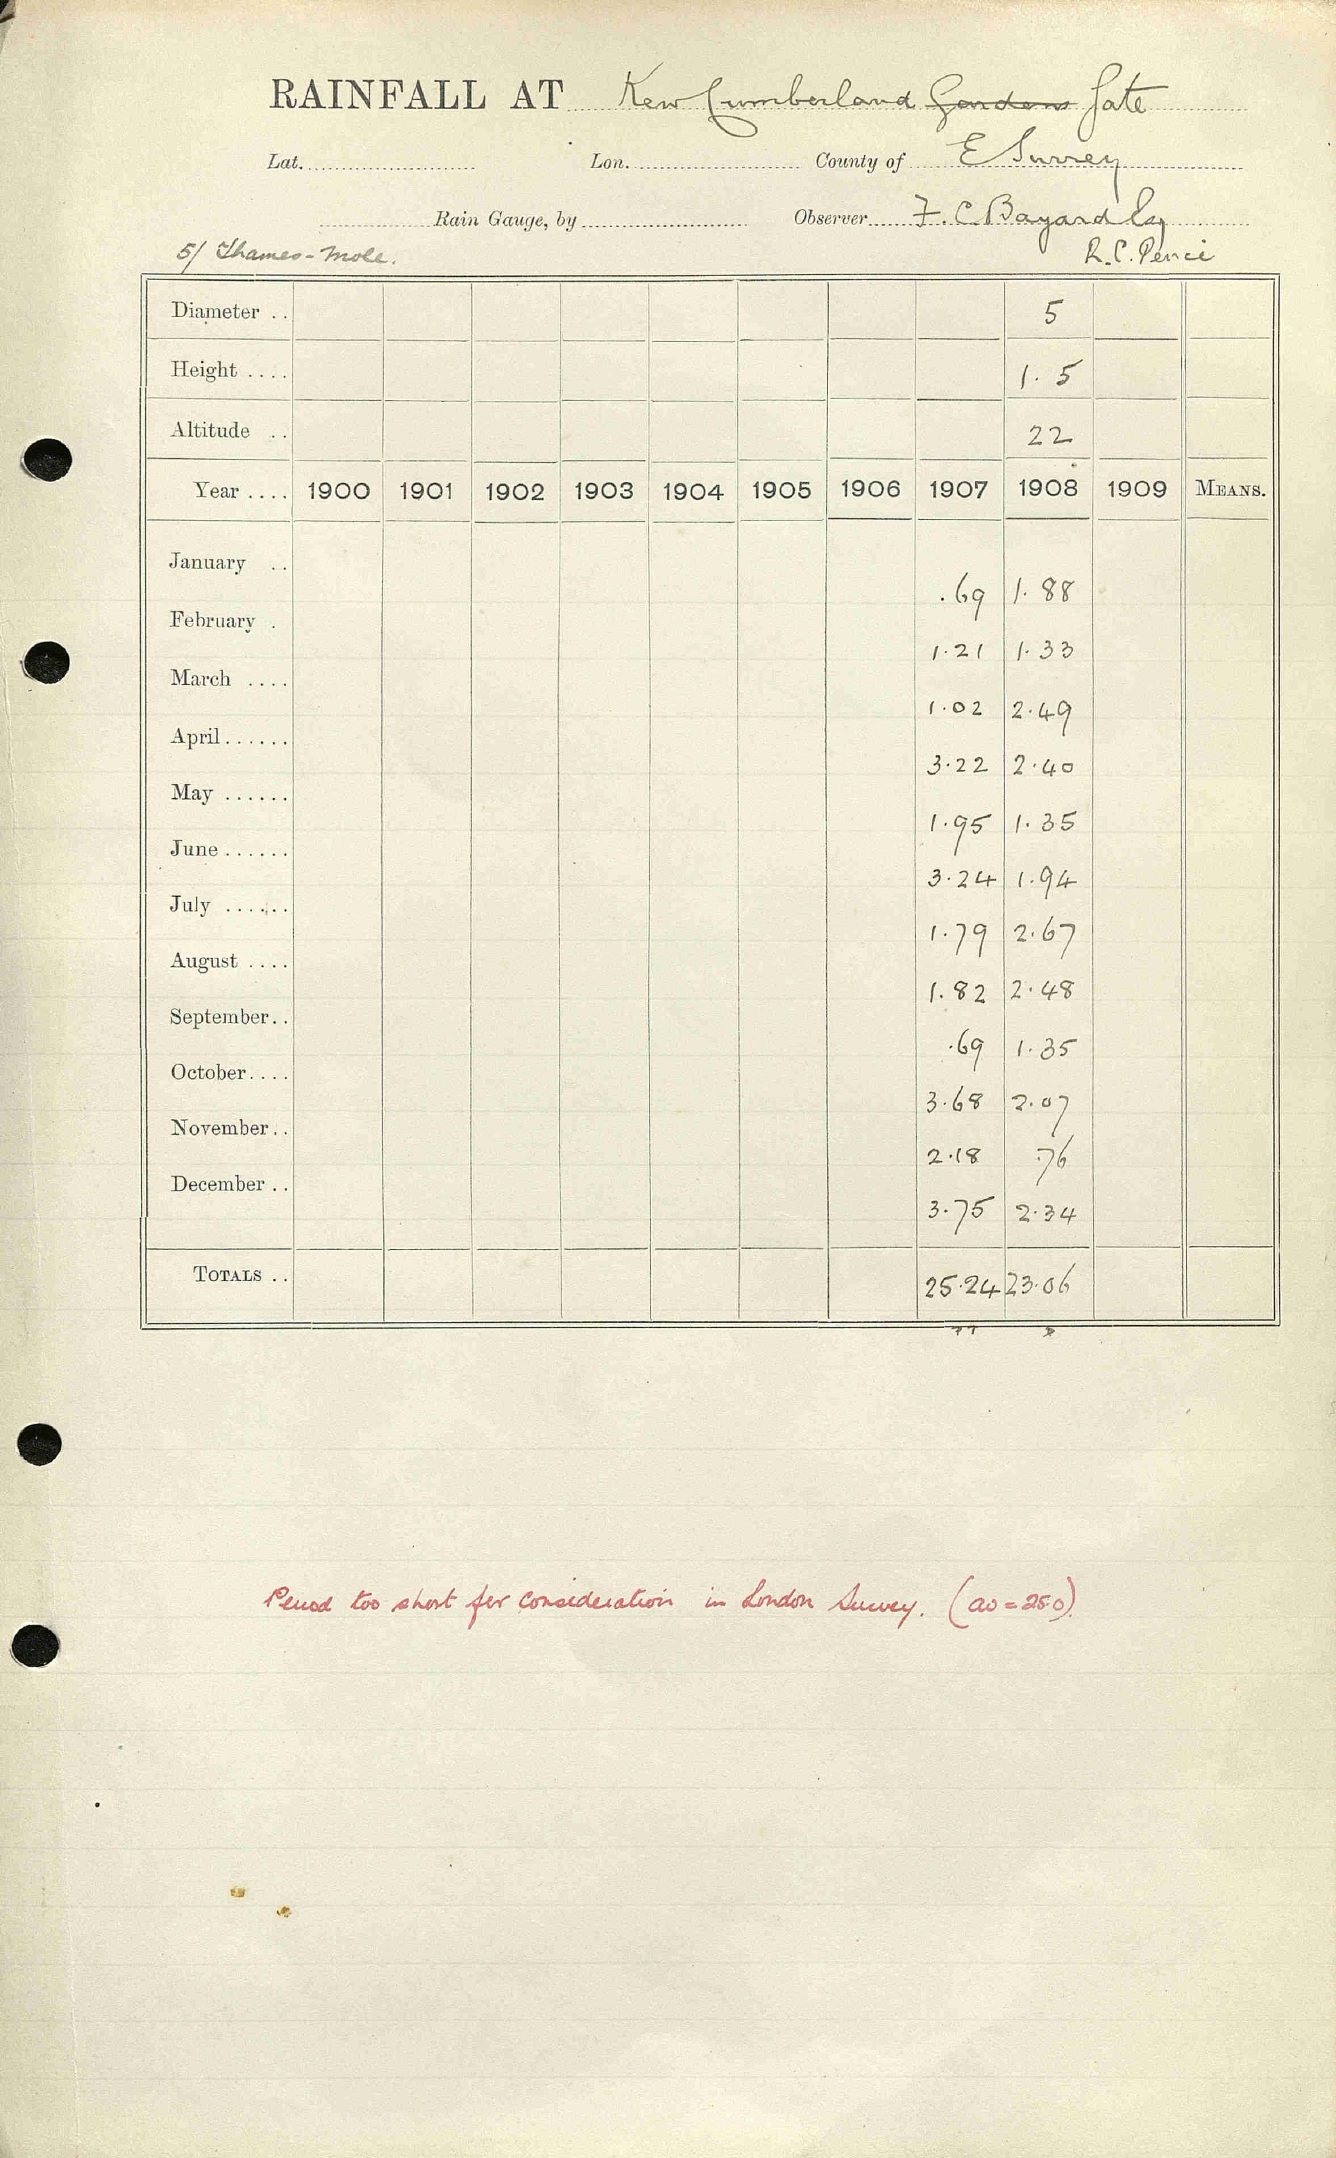 RAINFALL AT Kew Cumberland Gardens Gate
Lat. Lon. County of E Surrey
Rain Gauge, by Observer F. C. Bayard Esq
5/ Thames-Mole. R.C. Pence
Diameter .. 5
Height .... 1.5
Altitude .. 22
Year .... 1900 1901 1902 1903 1904 1905 1906 1907 1908 1909 MEANS.
January .. .69 1.88
February . 1.21 1.33
March .... 1.02 2.49
April...... 3.22 2.40
May ...... 1.95 1.35
June ...... 3.24 1.94
July ...... 1.79 2.67
August .... 1.82 2.48
September.. .69 1.35
October.... 3.68 2.07
November.. 2.18 .76
December .. 3.75 2.34
TOTALS .. 25.24 23.06
Period too short for consideration in London Survey. (av = 25.0)